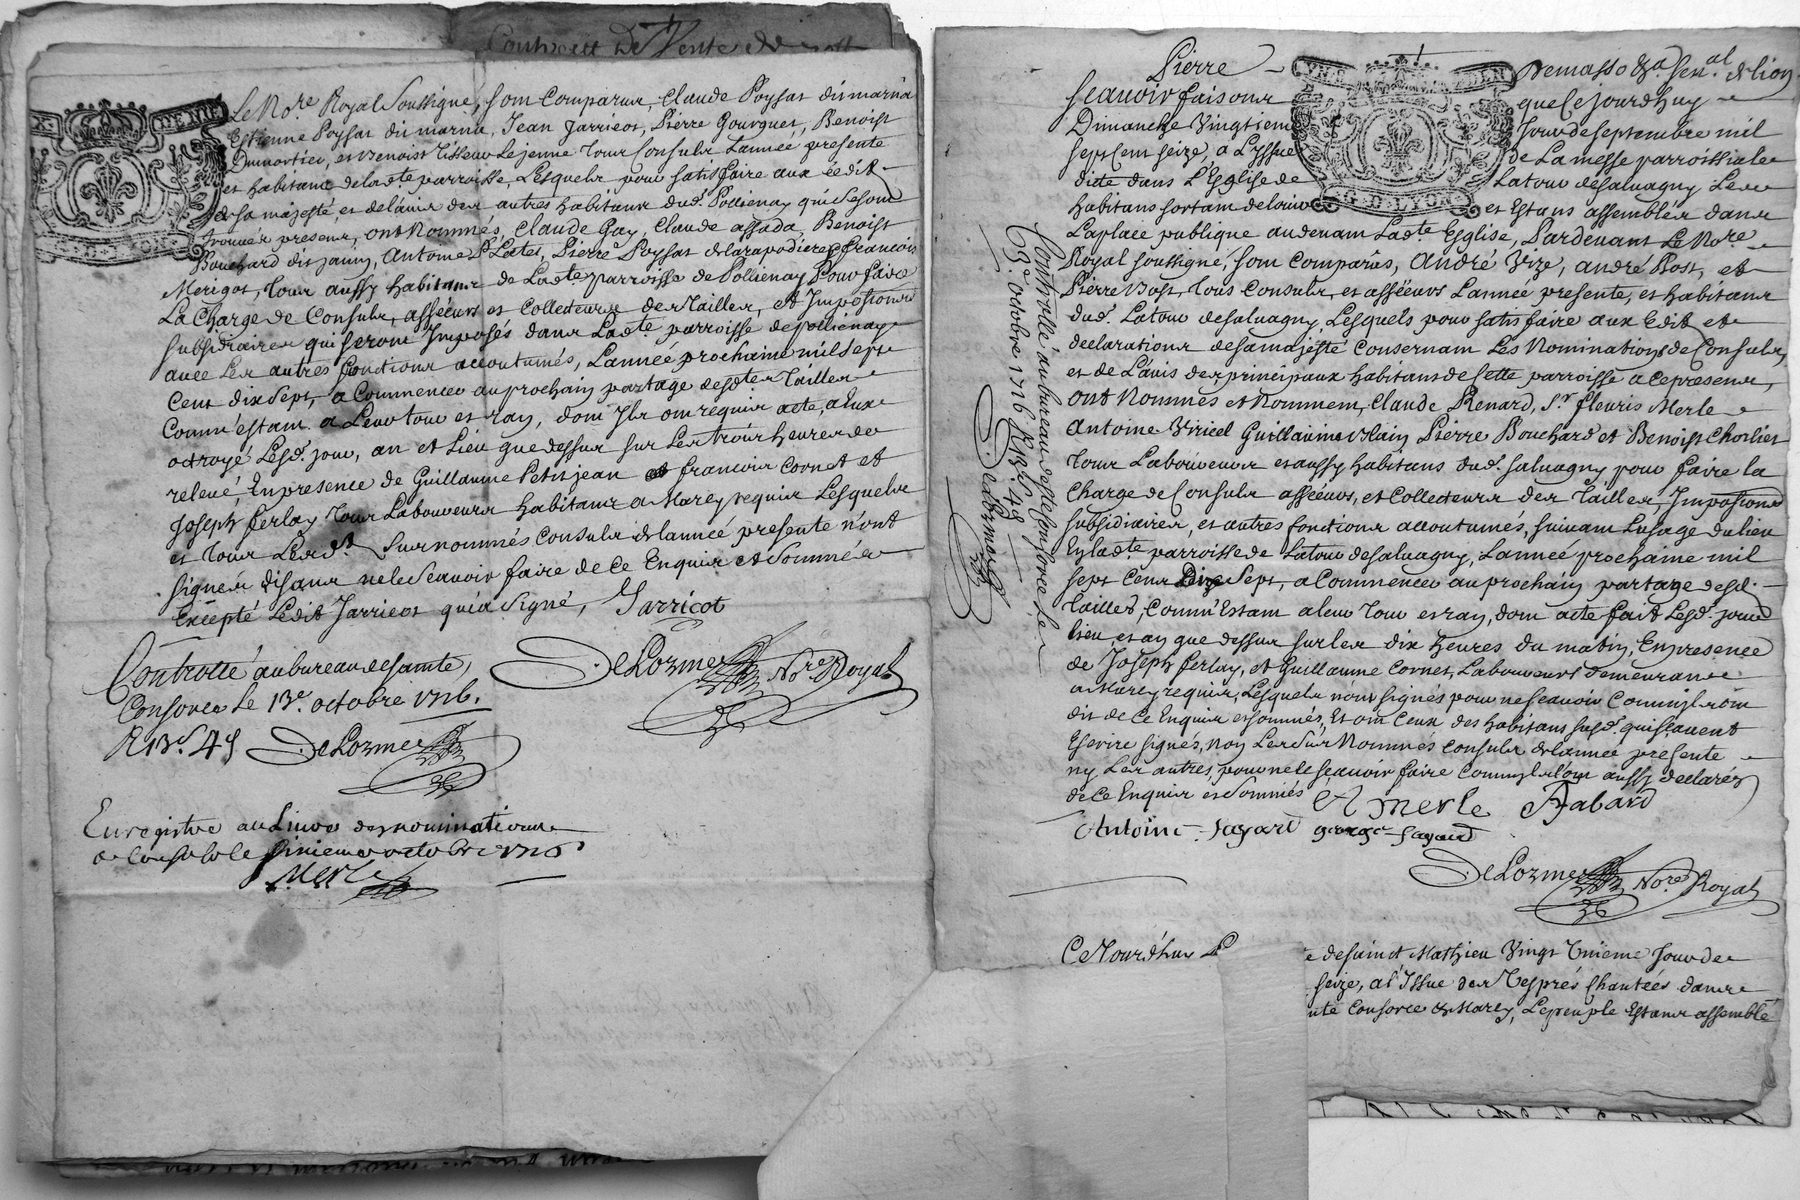 Contract De Vente
Le No.re Royal soussigné, sont comparus, Claude Poyssat dit marna
Estienne Poyssat dit marna, Jean Jarricot, Pierre Gourguet, Benoist
Dumortier, et Benoist Tisseur Lejeune Tous Consuls Lannée presente
et habitans delad.te parroisse, Lesquels pour satisfaire aux Edits
de sa majesté et de lavis des autres habitans dud. Pollienay qui se sont
trouvés presens, ont Nommés, Claude Gay, Claude assada, Benoist
Bouchard dit Janny, Antoine Pierre Poyssat francois
Merigot, Tous aussy habitans de Lad.te parroisse de Pollienay Pour faire
La Charge de Consuls, asséeurs et Collecteurs des Tailles, et Impositions
subsidiaires qui seront Imposés dans Lad.te parroisse de pollienay
avec Les autres fonctions accoutumés, Lannée prochaine mil sept
Cent dix sept, a Commencer au prochain partage desd.tes Tailles
Comm'estant a Leur tour et ran, dont Ils ont requis acte, a Eux
octroyé Lesd. jour, an et Lieu que dessus sur Les trois heures de
relevé, En presence de Guillaume Petitjean et francois Cornet et
Joseph ferlay Tous Laboureurs habitans a Marcy requis Lesquels
et Tous Lesd.ts surnommés Consuls de lannée presente n'ont
signés disans ne le Scavoir faire de ce Enquis et Sommés
Excepté Ledit Jarricot qui a signé, Jarricot
DeLorme No.re Royal
Controllé au bureau de sainte
Consorce le 13.e octobre 1716.
R 13s 4d DeLorme
Enregistré au Livre des nominations
de Consuls le octobre 1716
Merle
Pierre Demasso &a Sen.al de lion
Scavoir faisons que Cejourdhuy
Dimanche Vingtiem Jour de Septembre mil
sept Cent seize, a Lyssue de La messe parroissiale
dite dans L'Eglise de Latour de salvagny Les
habitans sortant deloir et Estans assemblés dans
Laplace publique audevant Lad.te Eglise, Pardevant Le No.re
Royal soussigné, sont Comparûs, André Vize, andré Bost, et
Pierre Bost, Tous Consuls, et asséeurs Lannée presente, et habitans
dud. Latour desalvagny, Lesquels pour satisfaire aux Edit et
declarations desamajesté Consernant Les Nominations de Consuls,
et de L'avis des principaux habitans de Cette parroisse a ce presens,
ont Nommés et Nomment, Claude Renard, S.r fleuris Merle
Antoine Viricel Guillaume Pierre Bouchard et Benoist Chorlier
Tous Laboureurs et aussy habitans dud. salvagny pour faire la
Charge de Consuls asséeurs, et Collecteurs des Tailles, Impositions
subsidiaires, et autres fonctions accoutumés, suivant Lusage du lieu
En Lad.te parroisse de Latour de salvagny, Lanneé prochaine mil
sept Cent Dix Sept, a Commencer au prochain partage desd.
Tailles, Comm'Estant a leur Tour et ran, dont acte fait Lesd. jour
lieu et an que dessus sur les dix heures du matin, En presence
de Joseph ferlay, et Guillaume Cornet, Laboureurs demeurans
a Marcy requis, Lesquels n'ont signés pour ne scavoir Comm'ils ont
dit de Ce Enquis et sommés, Et ont Ceux des habitans susd. qui scavent
Escrire signés, non Les sûs Nommés Consuls de lannée presente
ny Les autres, pour ne le scavoir faire Comm'ils l'ont aussy declarés
de Ce Enquis et Sommés A merle Fabard
Antoine fayard george fayard
DeLorme No.re Royal
Controllé au bureau de Ste Consorce le
13.e octobre 1716 R 13s 4d
DeLorme
Ce Jourd'huy desainct Mathieu Vingt Unième Jour de
seize, a l'Issue des Vesprés Chantées dans
Consorce de Marcy, Le peuple Estant assemblé